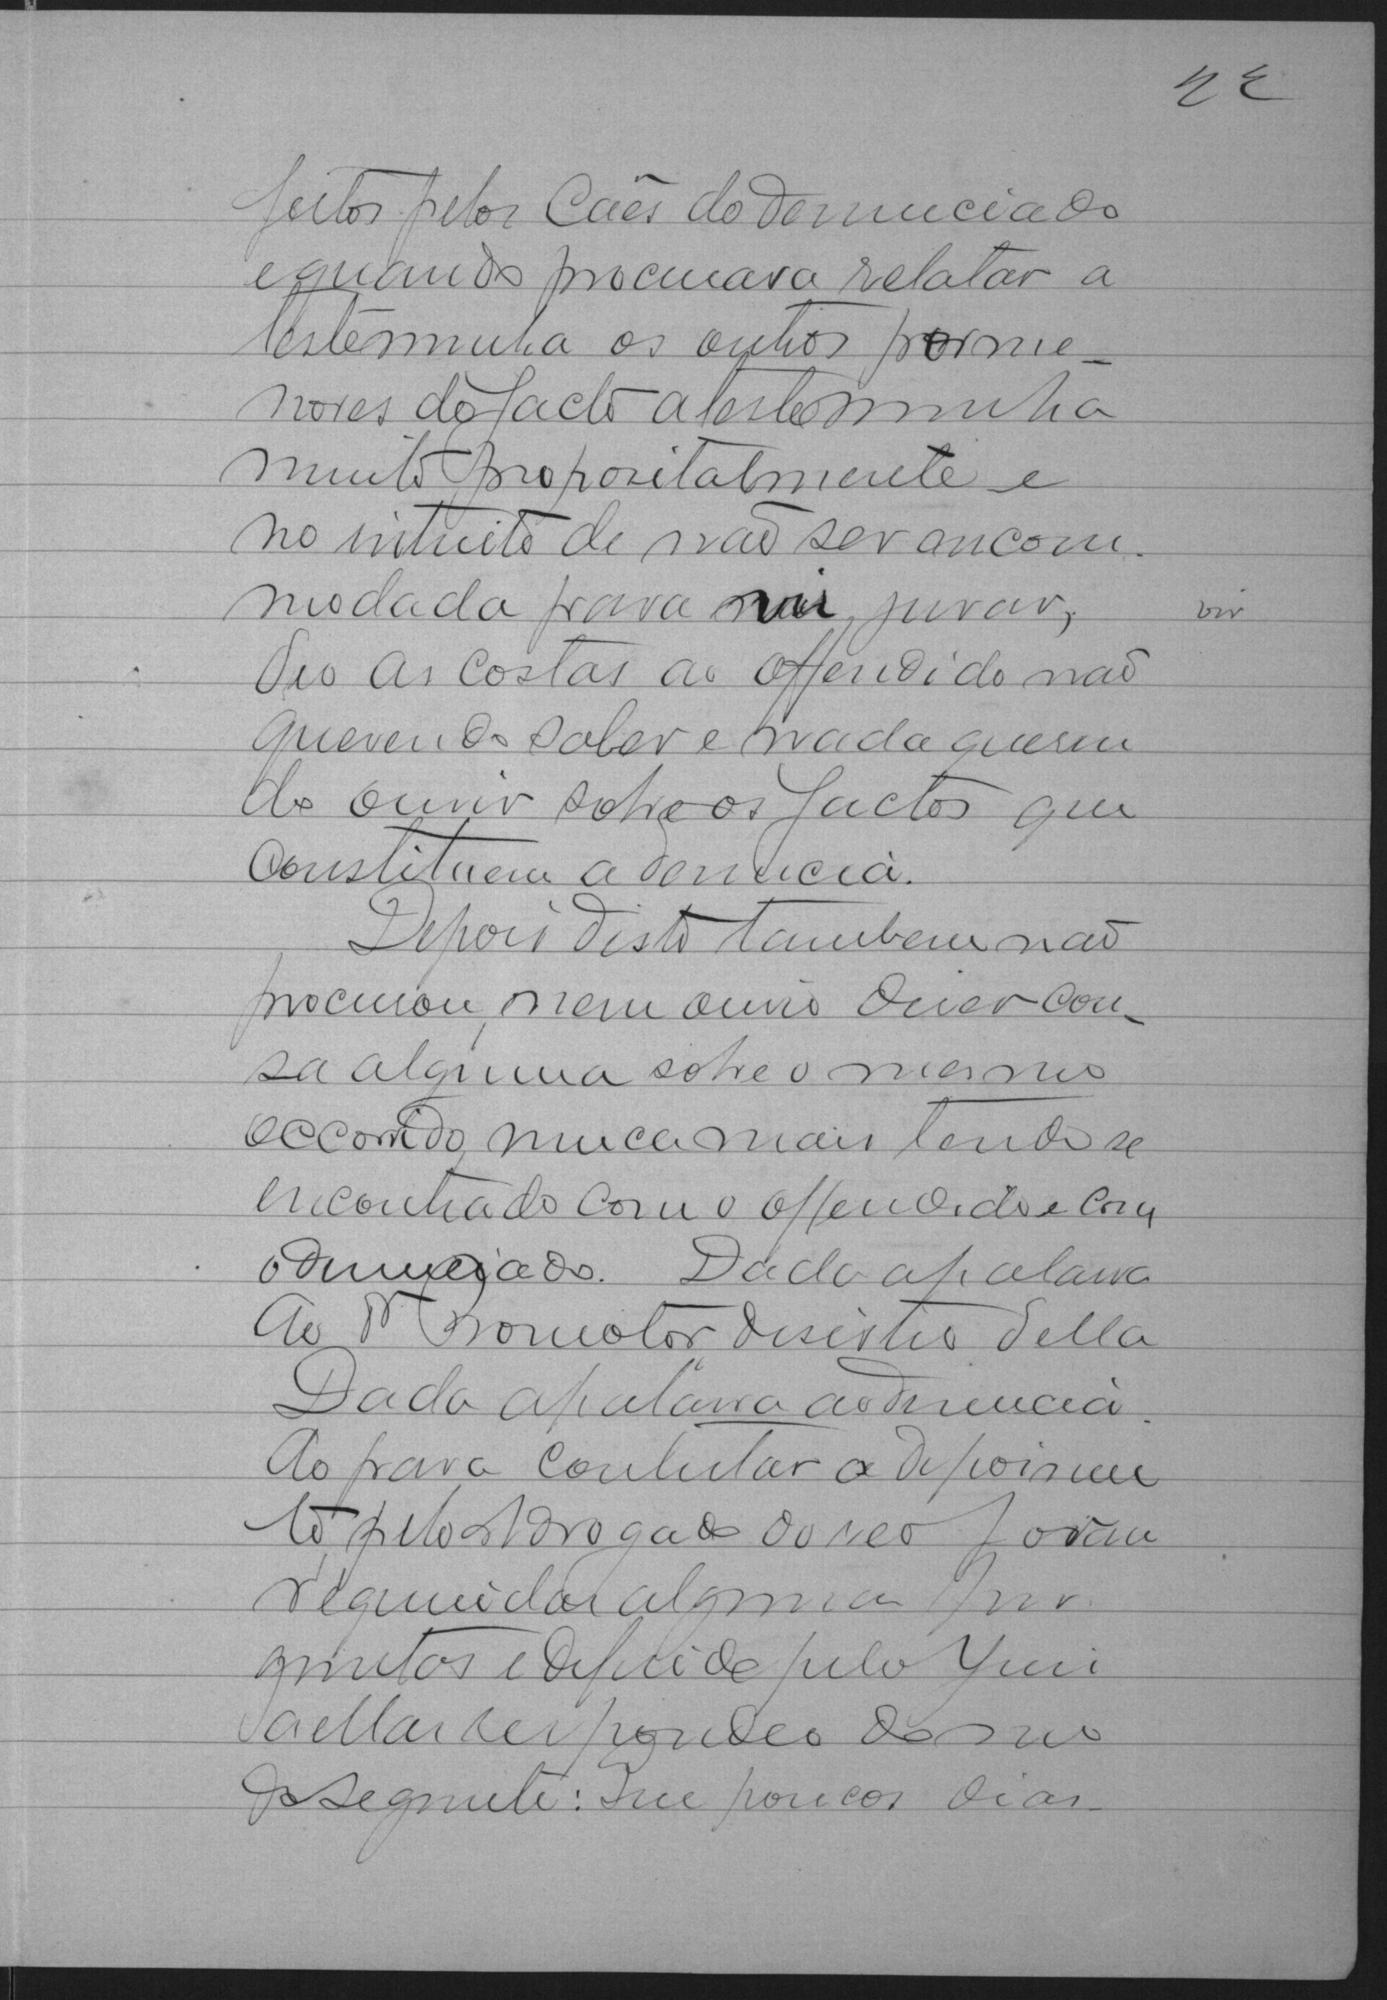 22
feitos pelos Cães do denunciado
e quando procurava relatar a
testemunha os outros porme_
nores do facto a testemunha
muito propositalmente e
no intuito de não ser encom.
modada para vir, jurar,
vir
deo as costas ao offendido não
querendo saber e nada queren
do ouvir sobre os factos que
constituem a denuncia.
Depois disto tambem não
procurou, nem ouvio dizer cou_
sa alguma sobre o mesmo
occorrido, nunca mais tendo se
encontrado com o offendido e com
o denunciado. Dada a palavra
ao Dr Promotor desistio della
Dada a palavra ao denuncia.
do para contestar o depoimen
to, pelo Advogado do reo foram
requeridas algumas per.
guntas e deferido pelo Juiz
a ellas respondeo do mo
do seguinte: Que poucos dias_